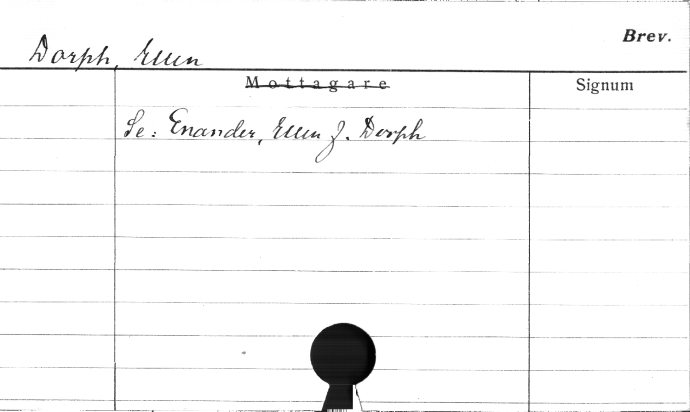 Brev.
Dorph, Ellen
Mottagare
Signum
Se: Enander, Ellen f. Dorph